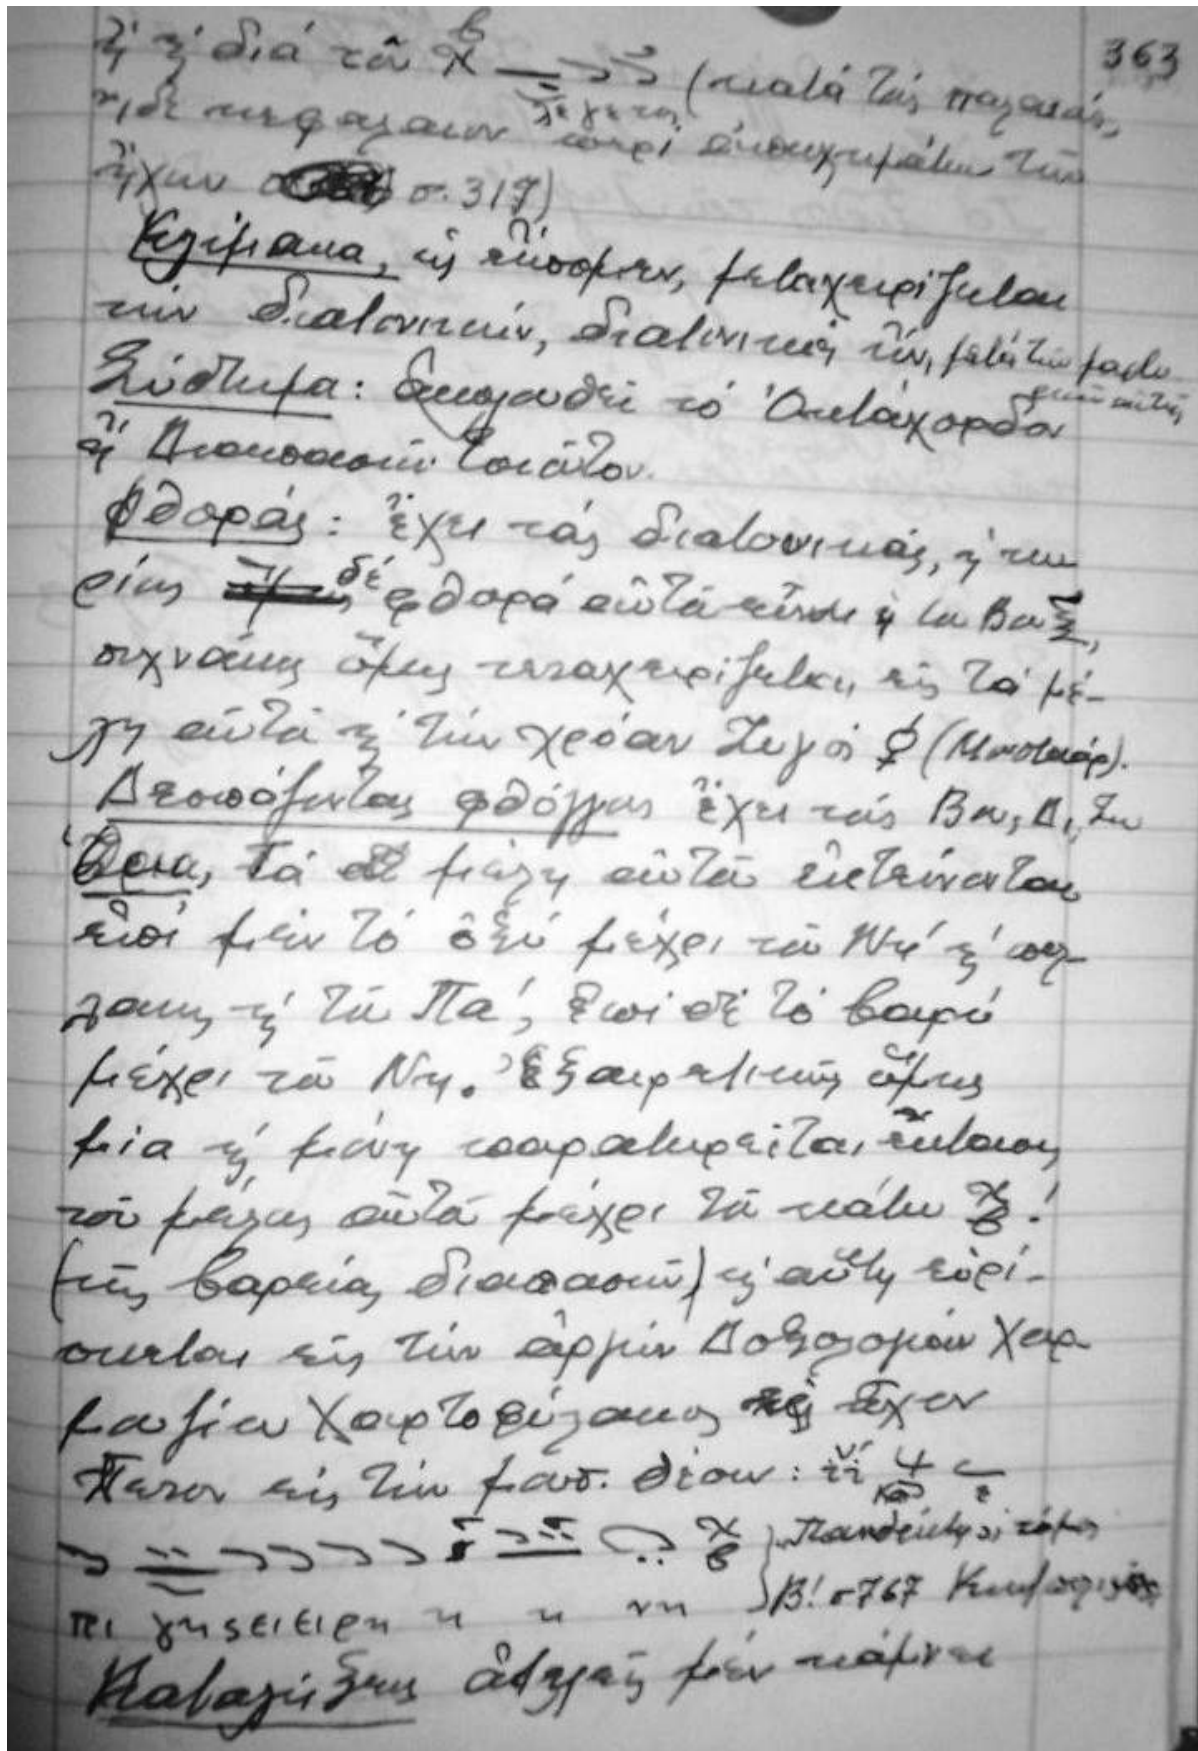 363
ἤ καί διά τοῦ (κατά τούς παλαιούς,
ἴδε κεφάλαιον περί ἀπηχημάτων τῶν
ἤχων σ. 317)
Κλίμακα, ὡς εἴπομεν, μεταχειρίζεται
τήν διατονικήν,
Σύστημα: Ἀκολουθεῖ τό Ὀκτάχορδον
ἤ Διαπασῶν τοιοῦτον.
Φθοράς: ἔχει τάς διατονικάς, ἡ κυ
ρίως δέ φθορά αὐτοῦ εἶναι ἡ τοῦ Βου,
συχνάκις ὅμως μεταχειρίζεται εἰς τά μέ-
λη αὐτοῦ καί τήν χρόαν Ζυγός (Μουσταάρ).
Δεσπόζοντας φθόγγους ἔχει τούς Βου, Δι, Ζω
Ὅρια, Τά μέλη αὐτοῦ ἐκτείνονται
ἐπί μέν τό ὀξύ μέχρι τοῦ Νη΄ καί πολ-
λάκις καί τοῦ Πα΄, ἐπί δέ τό βαρύ
μέχρι τοῦ Νη. Ἐξαιρετικῶς ὅμως
μία καί μόνη παρατηρεῖται ἔκτασις
τοῦ μέλους αὐτοῦ μέχρι τοῦ κάτω
(τῆς βαρείας διαπασῶν) καί αὕτη εὑρί-
σκεται εἰς τήν ἀργήν Δοξολογίαν Χουρ
μουζίου Χαρτοφύλακος ἤχου
εἰς τήν μουσ. θέσιν:
Πανδέκτη τόμος
Β! σ 767
Καταλήξεις ἀτελεῖς μέν κάμνει